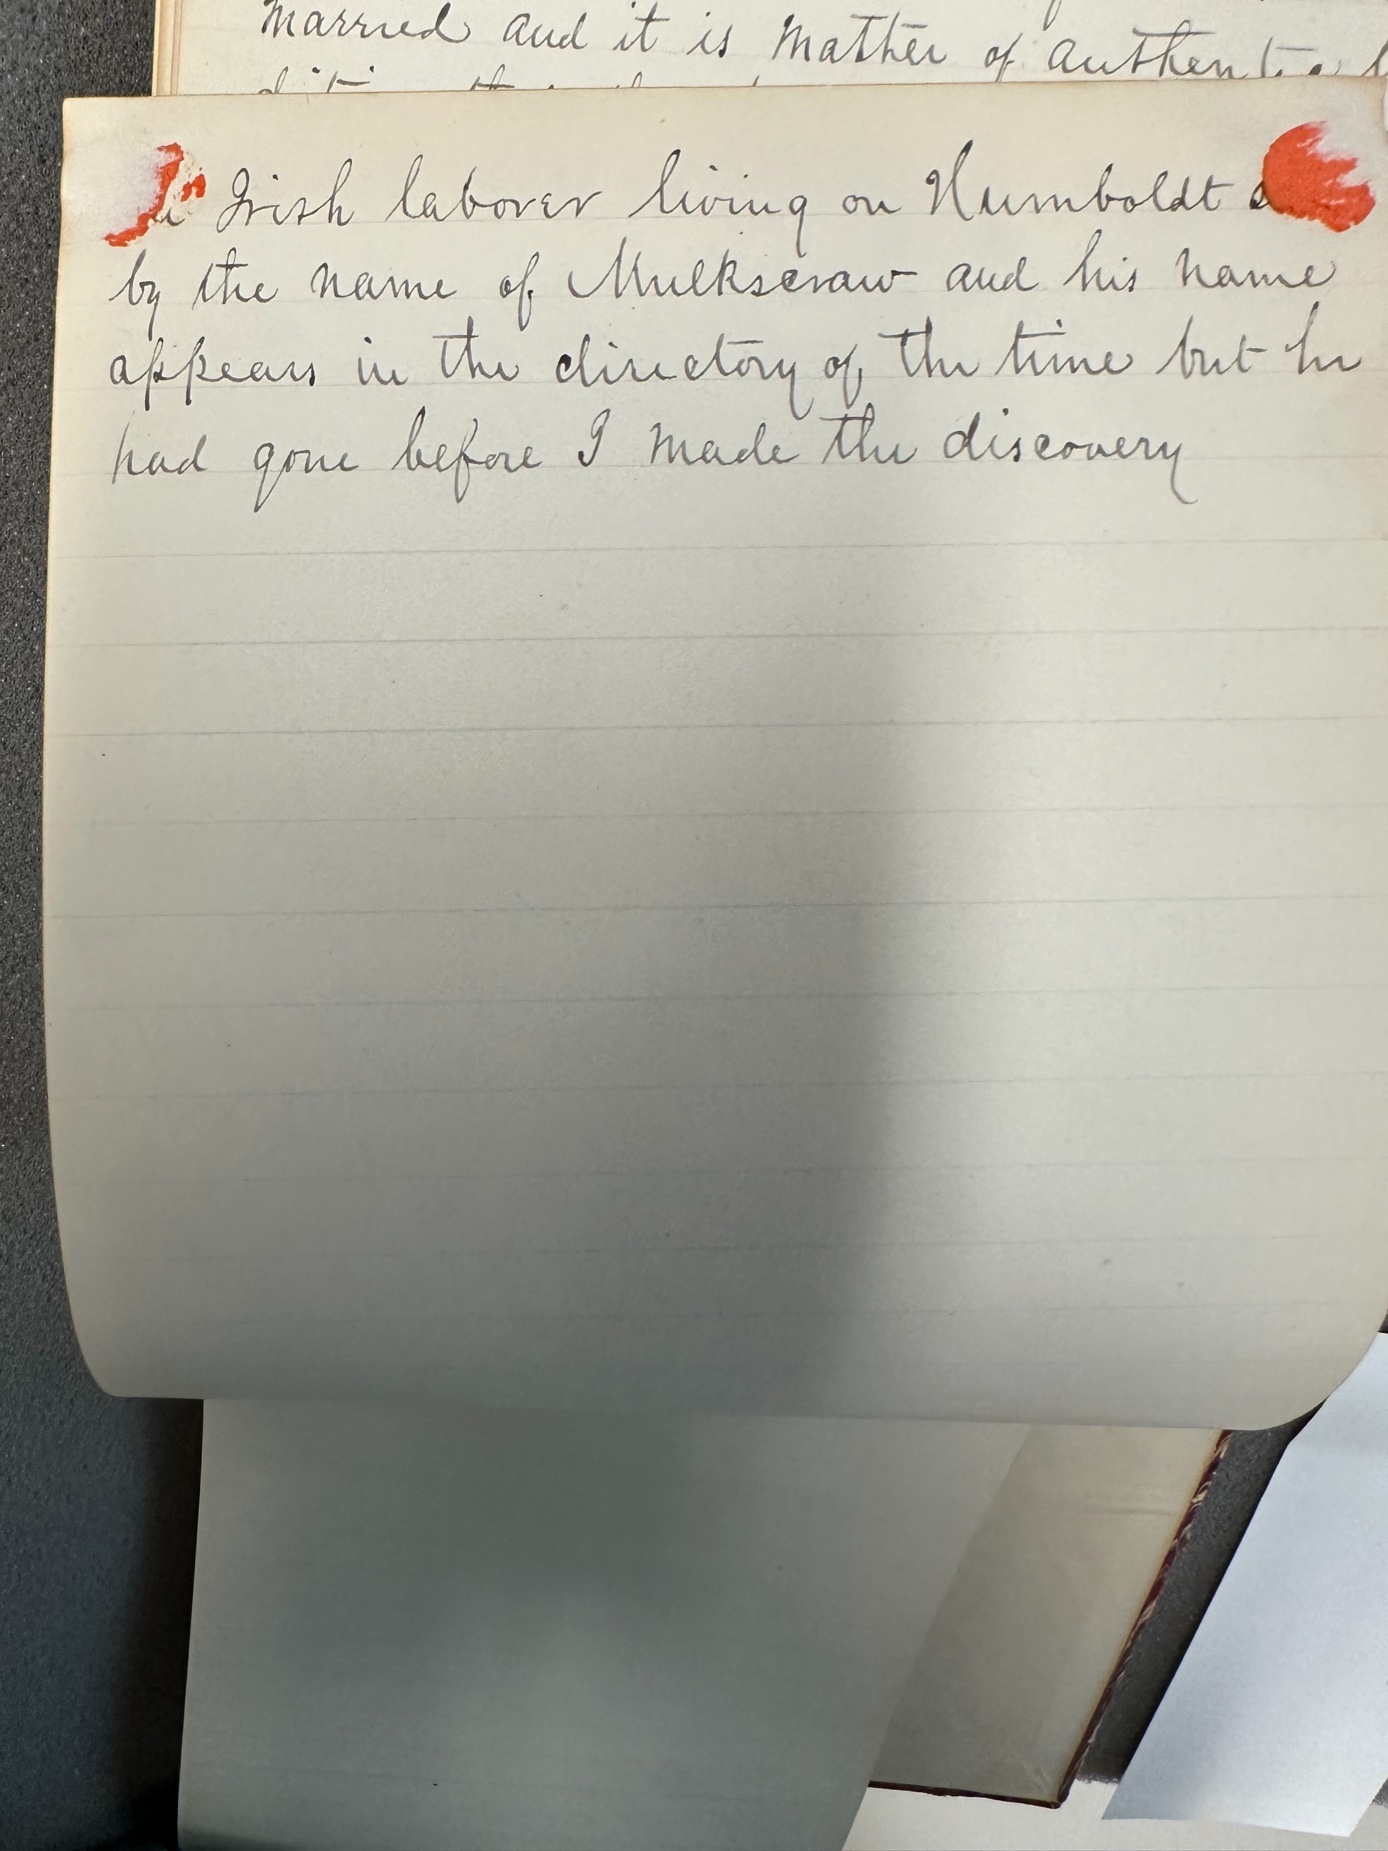 married and it is matter of
Irish laborer living on Humboldt
by the name of Mulkscraw and his name
appears in the directory of the time but he
had gone before I made the discovery